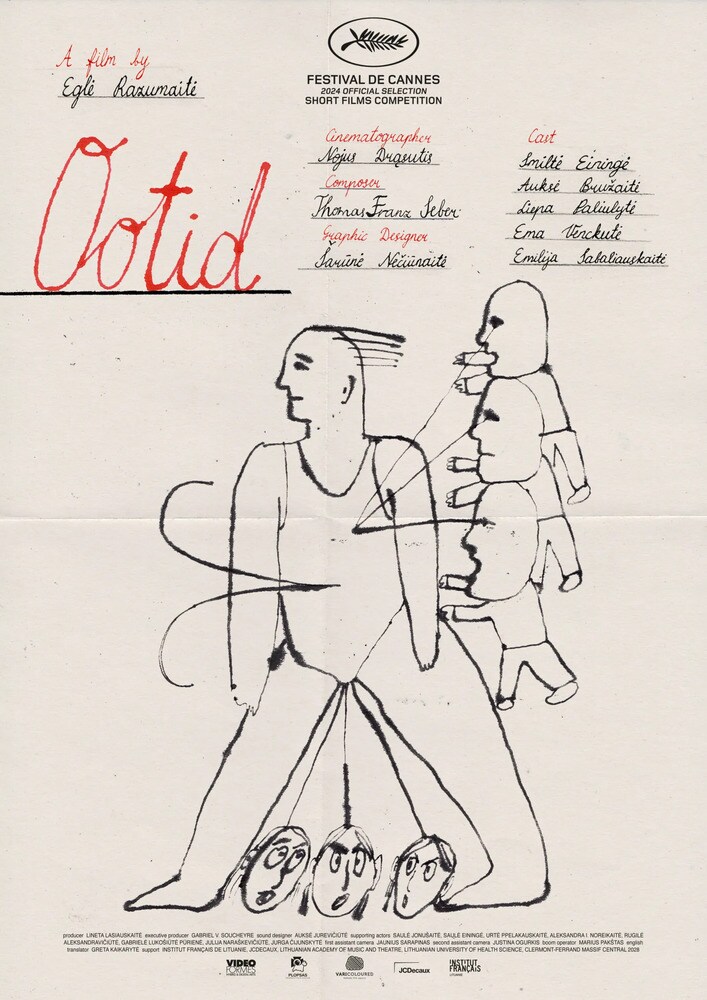 A film by
Eglė Razumaitė
FESTIVAL DE CANNES
2024 OFFICIAL SELECTION
SHORT FILMS COMPETITION
Ootid
Cinematographer
Nojus Drąsutis
Composer
Thomas Franz Seber
Graphic Designer
Šarūnė Nečiūnaitė
Cast
Smiltė Eiringė
Auksė Bružaitė
Liepa Paliulytė
Ema Verckutė
Emilija Sabaliauskaitė
producer LINETA LASIAUSKAITĖ executive producer GABRIEL V. SOUCHEYRE sound designer AUKSĖ JUREVIČIŪTĖ supporting actors SAULĖ JONUŠAITĖ, SAULĖ EININGĖ, URTĖ PPELAKAUSKAITĖ, ALEKSANDRA I. NOREIKAITĖ, RUGILĖ
ALEKSANDRAVIČIŪTĖ, GABRIELĖ LUKOŠIŪTĖ PŪRIENĖ, JULIJA NARAŠKEVIČIŪTĖ, JURGA ČIJUNSKYTĖ first assistant camera JAUNIUS SARAPINAS second assistant camera JUSTINA OGURKIS boom operator MARIUS PAKŠTAS english
translator GRETA KAIKARYTĖ support INSTITUT FRANÇAIS DE LITUANIE, JCDECAUX, LITHUANIAN ACADEMY OF MUSIC AND THEATRE, LITHUANIAN UNIVERSITY OF HEALTH SCIENCE, CLERMONT-FERRAND MASSIF CENTRAL 2028
VIDEO
FORMES
PLOPSAS
VARICOLOURED
JCDecaux
INSTITUT
FRANÇAIS
LITUANIE